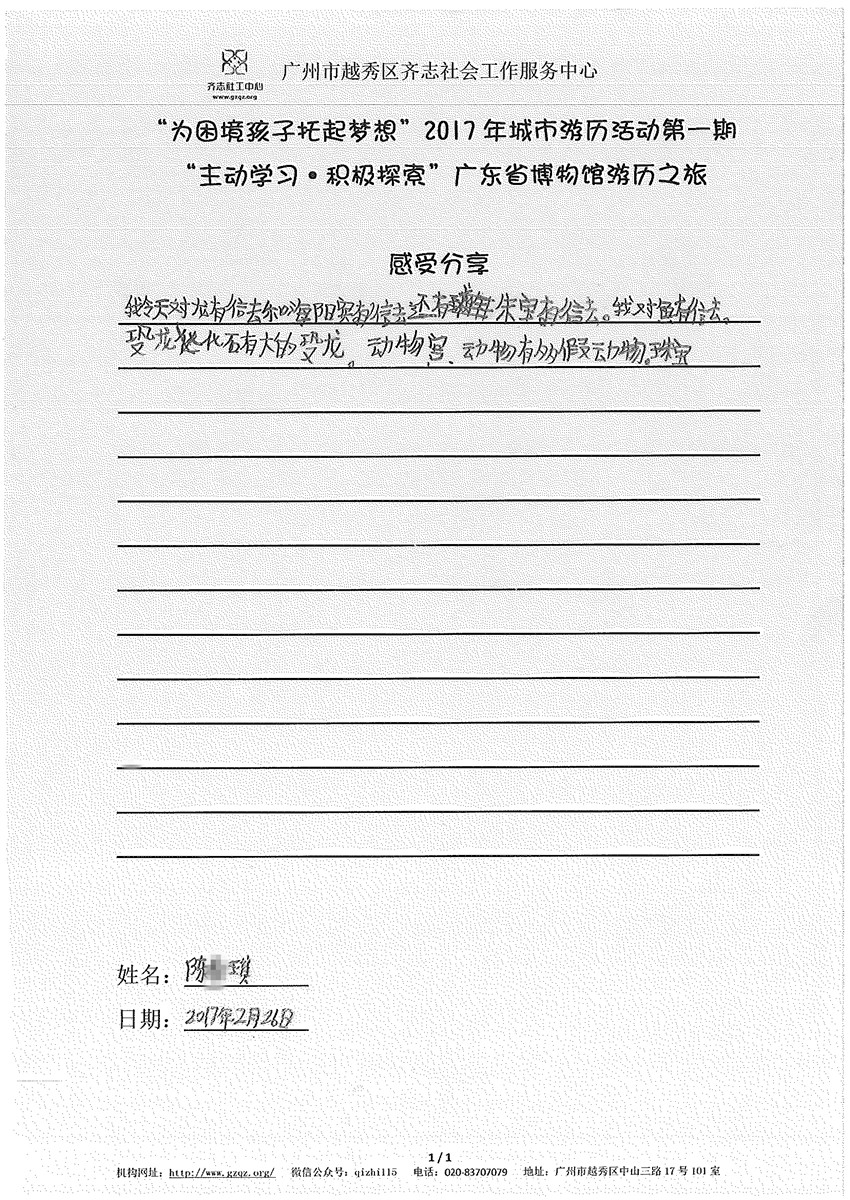 齐志社工中心
www.gzqz.org
广州市越秀区齐志社会工作服务中心
“为困境孩子托起梦想”2017年城市游历活动第一期
“主动学习·积极探索”广东省博物馆游历之旅
感受分享
我今天对龙有信去和海阳宾有信去还有珠宝有信去。我对鱼有信去。
恐龙化石有大的恐龙。动物宫、动物有多多假动物。珠宝
姓名：陈 琪
日期：2017年2月26日
1 / 1
机构网址：http://www.gzqz.org/ 微信公众号：qizhi115 电话：020-83707079 地址：广州市越秀区中山三路17号101室